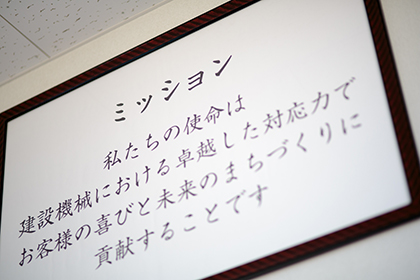 ミッション
私たちの使命は
建設機械における卓越した対応力で
お客様の喜びと未来のまちづくりに
貢献することです